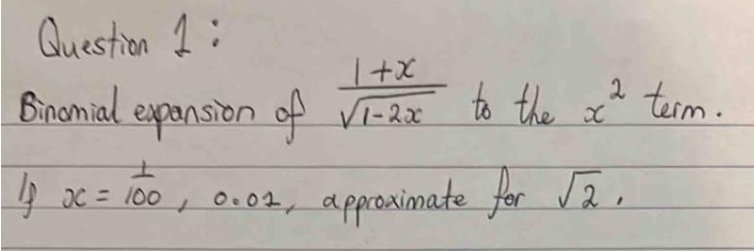 Question 1:
Binomial expansion of \frac{1+x}{\sqrt{1-2x}} to the x² term.
If x = \frac{1}{100}, 0.01, approximate for √2.